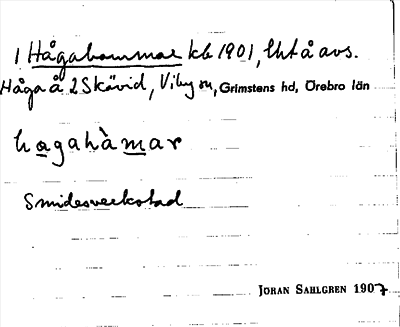 1 Hågahammar kb 1901, Utå avs.
Håga å 2 Skävid, Viby sn, Grimstens hd, Örebro län
hagahàmar
Smidesverkstad
JÖRAN SAHLGREN 1907